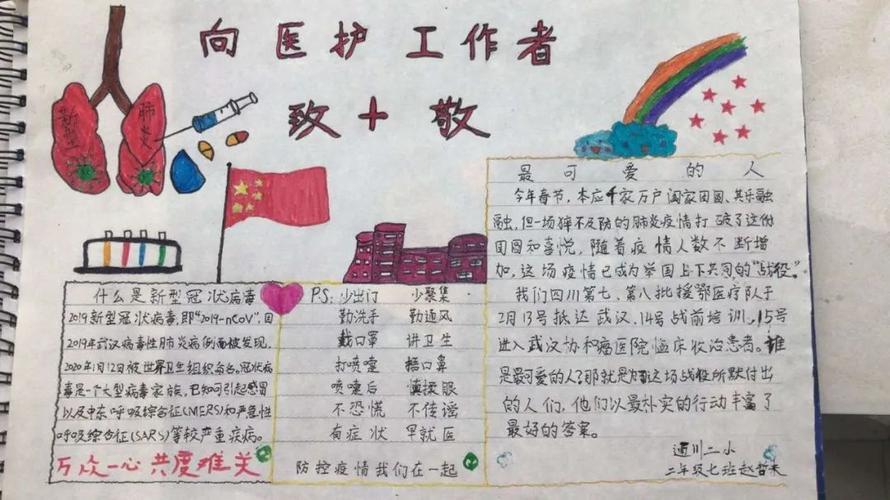 向医护工作者
致敬
新型
肺炎
什么是新型冠状病毒
2019新型冠状病毒,即"2019-nCoV",因
2019年武汉病毒性肺炎病例而被发现,
2020年1月12日被世界卫生组织命名。冠状病
毒是一个大型病毒家族,已知可引起感冒
以及中东呼吸综合征(MERS)和严重急性
呼吸综合征(SARS)等较严重疾病。
万众一心 共度难关
PS: 少出门 少聚集
勤洗手 勤通风
戴口罩 讲卫生
打喷嚏 捂口鼻
喷嚏后 慎揉眼
不恐慌 不传谣
有症状 早就医
防控疫情我们在一起
最可爱的人
今年春节,本应千家万户阖家团圆、其乐融
融,但一场猝不及防的肺炎疫情打破了这份
团圆和喜悦,随着疫情人数不断增
加,这场疫情已成为举国上下共同的"战役"。
我们四川第七、第八批援鄂医疗队于
2月13号抵达武汉,14号战前培训,15号
进入武汉协和肿瘤医院临床收治患者。谁
是最可爱的人?那就是为这场战役所默付出
的人们,他们以最朴实的行动丰富了
最好的答案。
通川二小
二年级七班赵哲